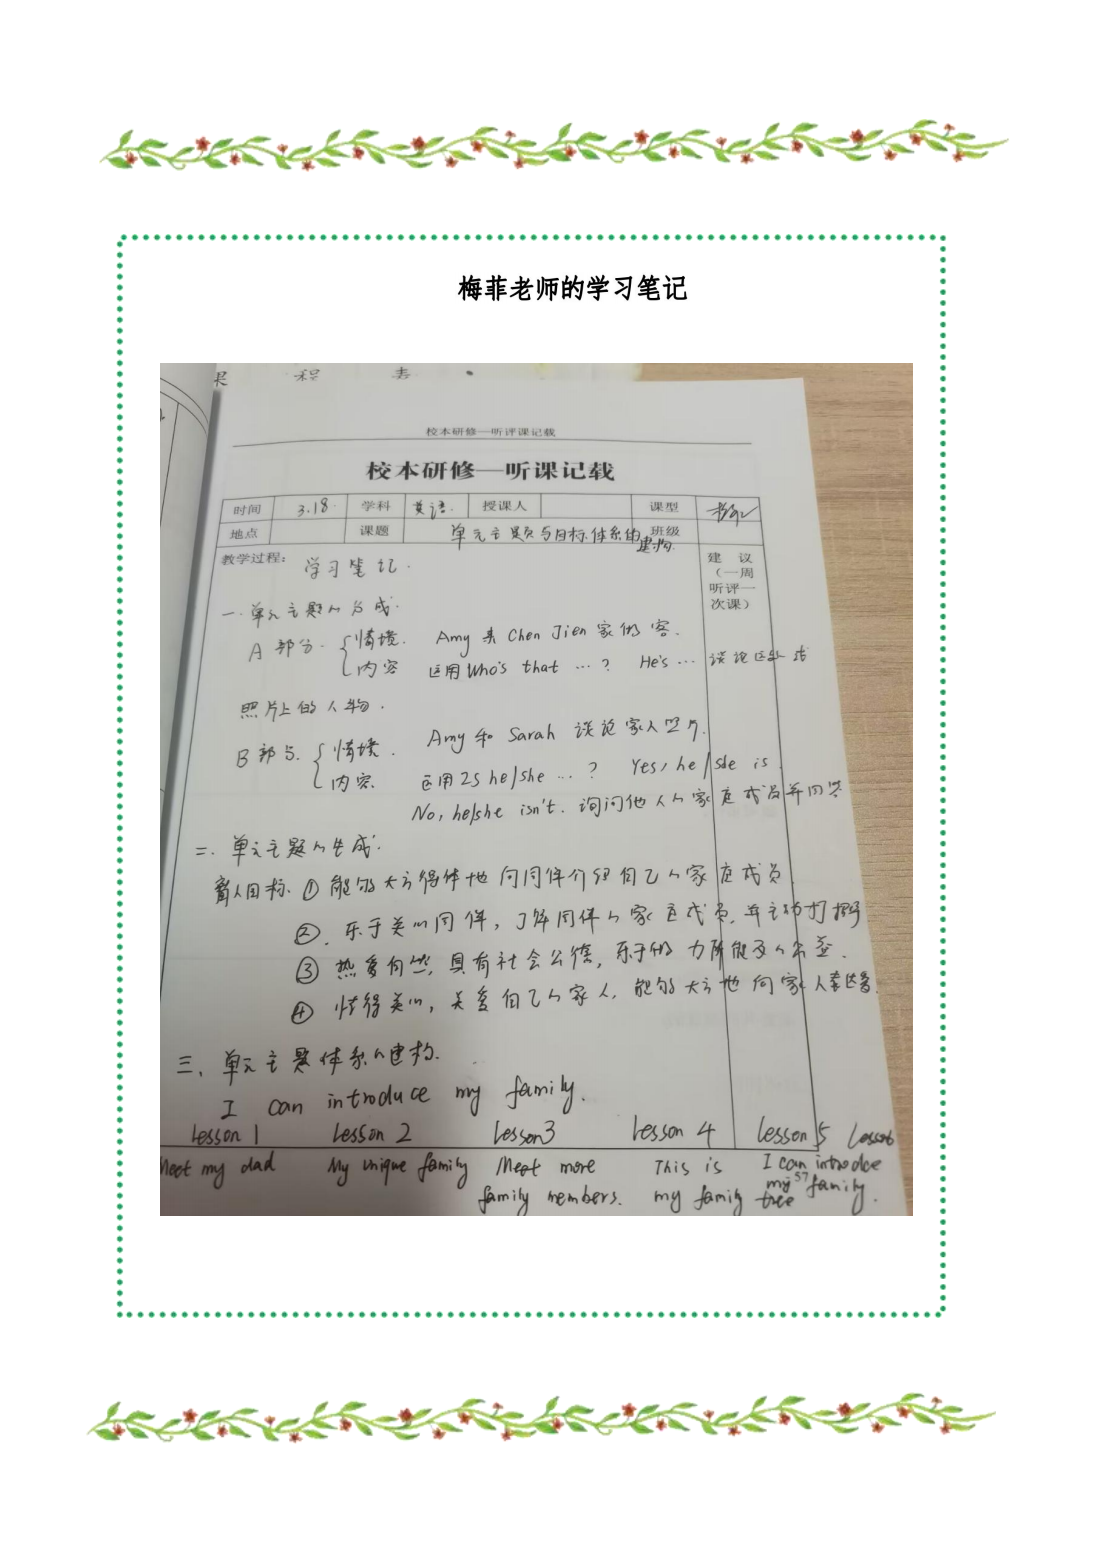 梅菲老师的学习笔记
程 表
校本研修—听评课记载
校本研修—听课记载
时间 3.18 学科 英语 授课人 课型
地点 课题 单元主题与目标体系的建构 班级
教学过程： 学习笔记. 建 议
（一周
听评一
次课）
一.单元主题的分成.
A部分. 情境. Amy来Chen Jien家做客.
内容 运用Who's that …？ He's … 谈论
照片上的人物.
B部分. 情境. Amy和Sarah谈论家人照片.
内容. 运用Is he/she …? Yes, he/she is.
No, he/she isn't. 询问他人的家庭成员并回答
二. 单元主题的生成.
育人目标. ① 能够大方得体地向同伴介绍自己的家庭成员.
②. 乐于关心同伴，了解同伴的家庭成员，并主动打招呼
③ 热爱自然，具有社会公德，乐于做力所能及的
④ 懂得关心，关爱自己的家人，能够大方地向家人表达爱.
三、单元主题体系的建构.
I can introduce my family.
Lesson 1 Lesson 2 Lesson3 Lesson 4 Lesson 5 Lesson6
Meet my dad My unique family Meet more This is I can introduce
family members. my family tree my family.
57